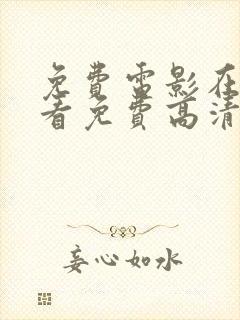 免費雷影在
看免費高清
妄心如水